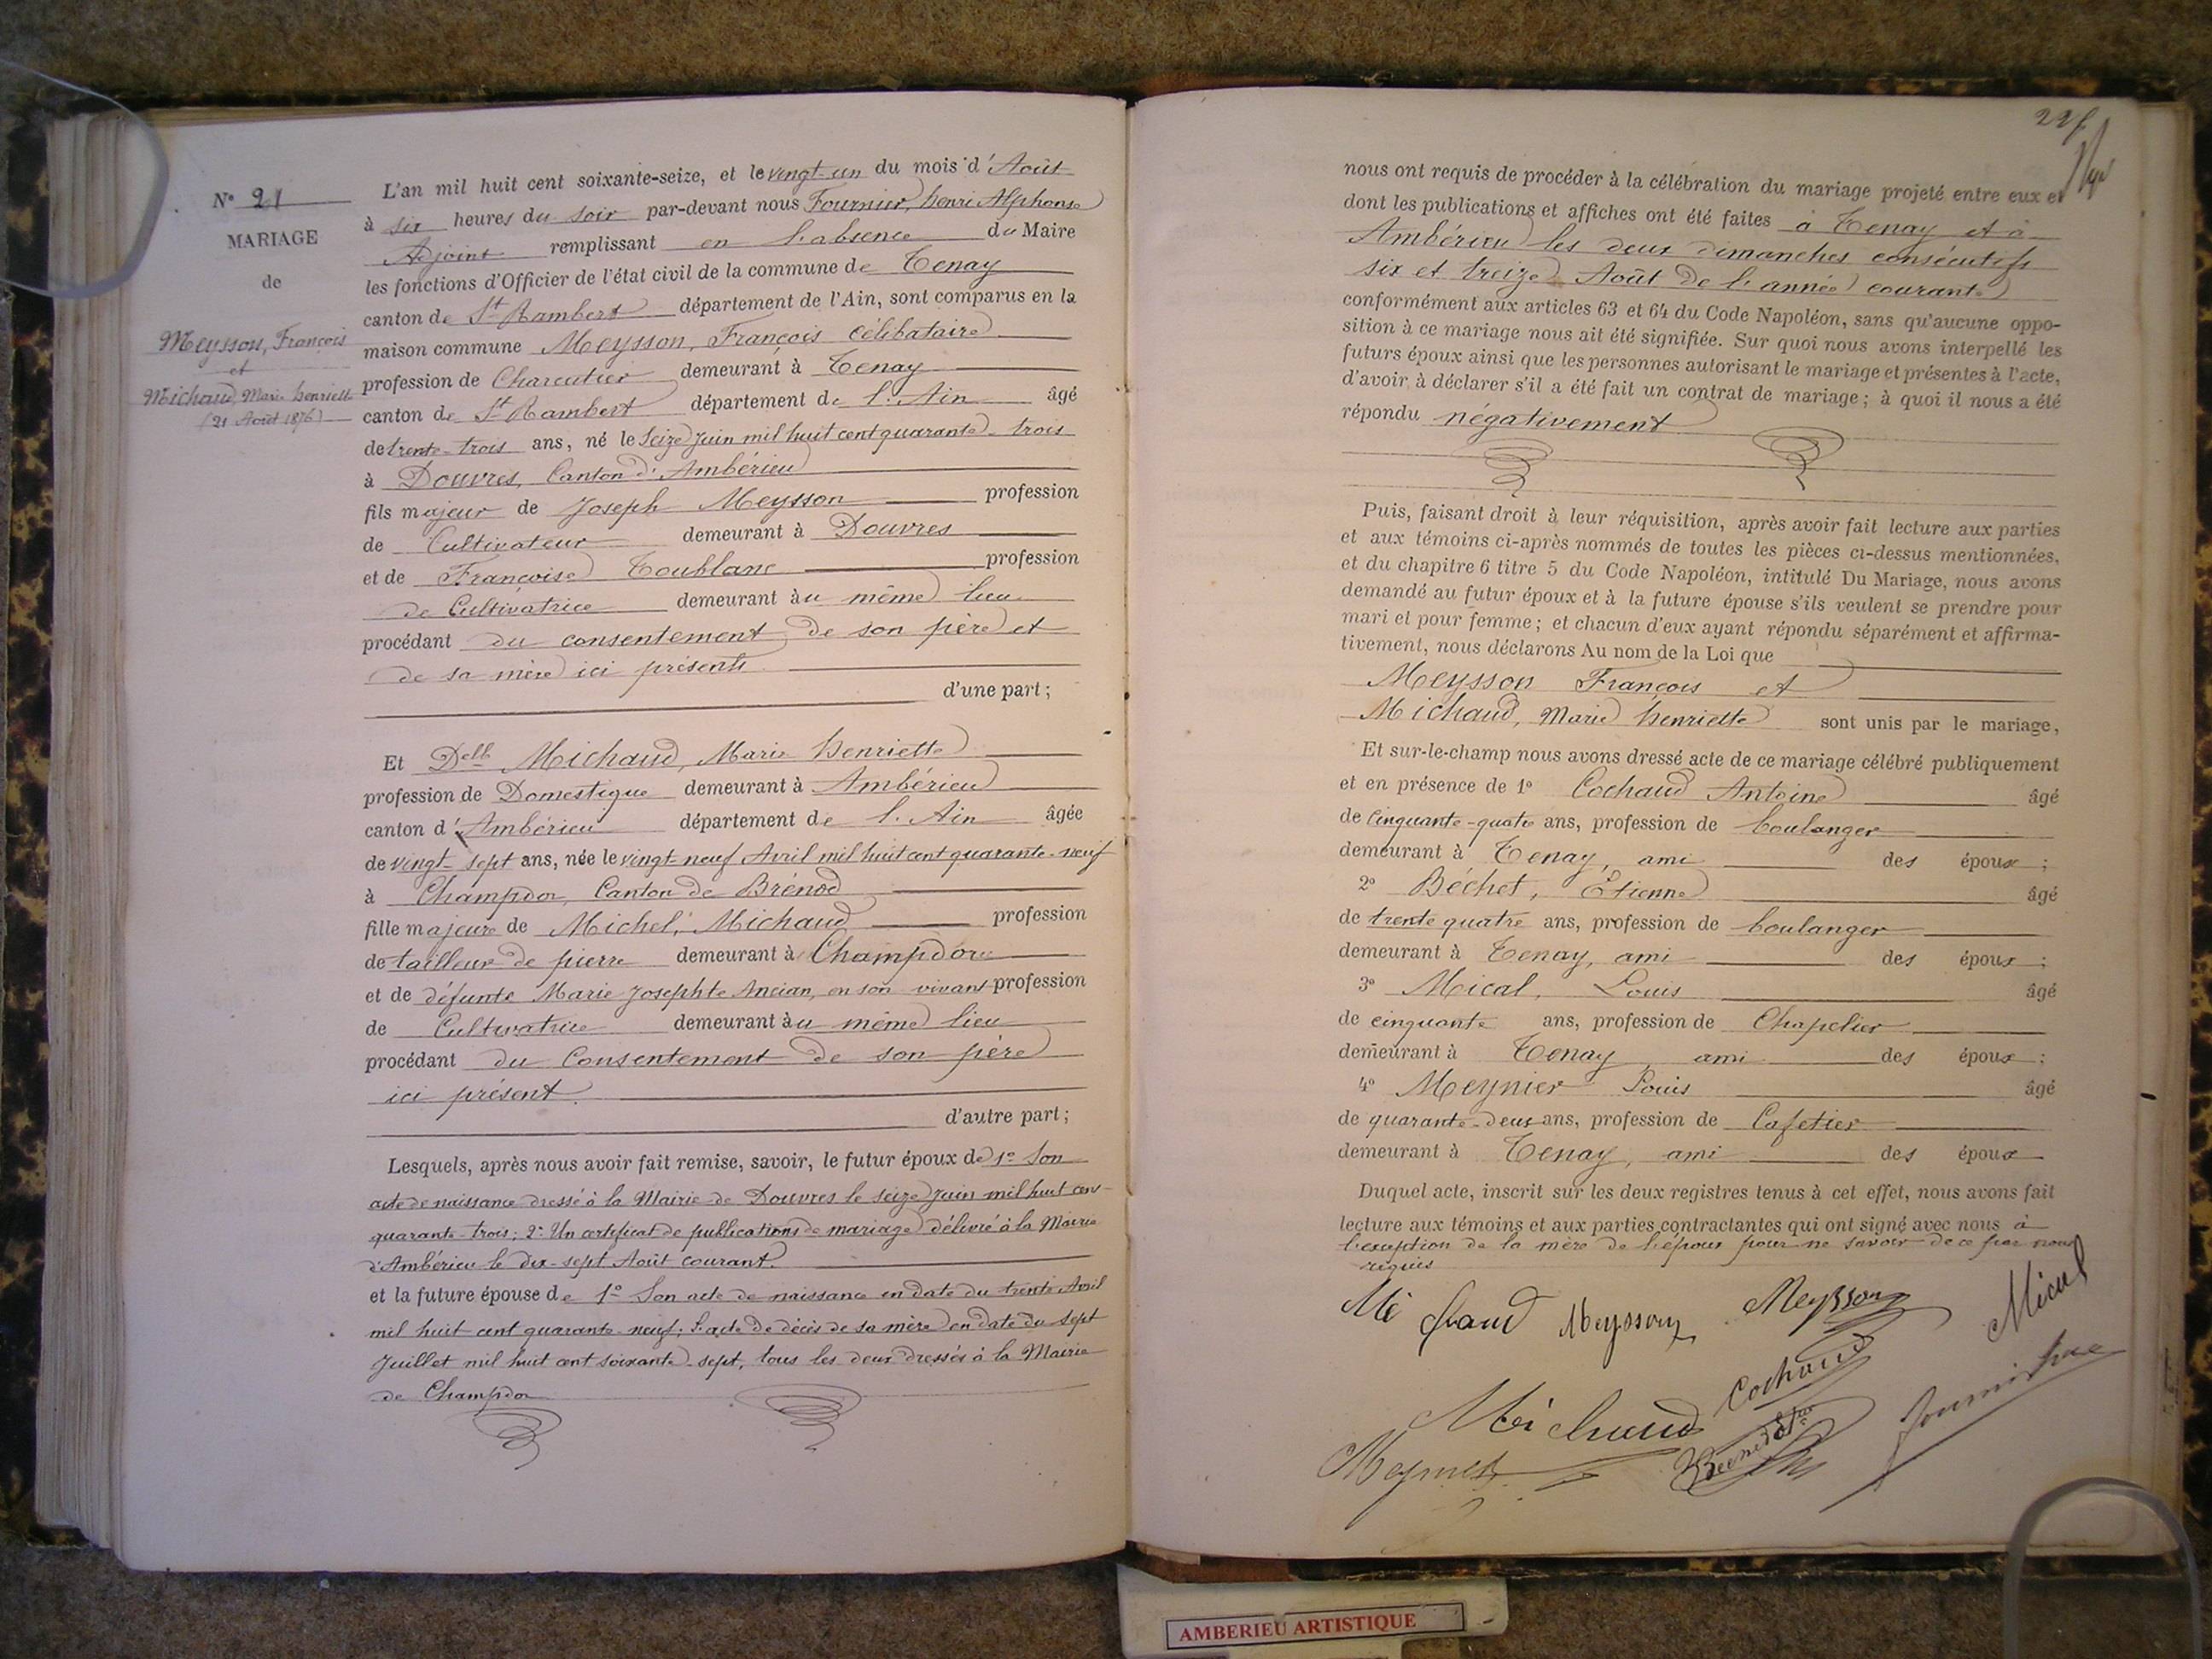 N° 21
MARIAGE
de
Meysson, François
et
Michaud, Marie henriette
(21 Août 1876)
L'an mil huit cent soixante-seize, et le vingt-un du mois d'Août
à six heures du soir par-devant nous Fournier, henri Alphonse
Adjoint remplissant en l'absence du Maire
les fonctions d'Officier de l'état civil de la commune de Tenay
canton de St Rambert département de l'Ain, sont comparus en la
maison commune Meysson, François célibataire
profession de Charcutier demeurant à Tenay
canton de St Rambert département de l'Ain âgé
de trente-trois ans, né le seize Juin mil huit cent quarante-trois
à Douvres, Canton d'Ambérieu
fils majeur de Joseph Meysson profession
de Cultivateur demeurant à Douvres
et de Françoise Toublanc profession
de Cultivatrice demeurant au même lieu
procédant du consentement de son père et
de sa mère ici présents
d'une part;
Et Delle Michaud, Marie henriette
profession de Domestique demeurant à Ambérieu
canton d'Ambérieu département de l'Ain âgée
de vingt-sept ans, née le vingt-neuf Avril mil huit cent quarante-neuf
à Champdor, Canton de Brénod
fille majeure de Michel Michaud profession
de tailleur de pierre demeurant à Champdor
et de défunte Marie Josephte Ancian, en son vivant profession
de Cultivatrice demeurant au même lieu
procédant du Consentement de son père
ici présent.
d'autre part;
Lesquels, après nous avoir fait remise, savoir, le futur époux de 1° Son
acte de naissance dressé à la Mairie de Douvres le seize Juin mil huit cent
quarante-trois; 2° Un certificat de publications de mariage délivré à la Mairie
d'Ambérieu le dix-sept Août courant.
et la future épouse de 1° Son acte de naissance en date du trente Avril
mil huit cent quarante-neuf; l'acte de décès de sa mère en date du sept
Juillet mil huit cent soixante-sept, tous les deux dressés à la Mairie
de Champdor
nous ont requis de procéder à la célébration du mariage projeté entre eux et
dont les publications et affiches ont été faites à Tenay et à
Ambérieu les deux dimanches consécutifs
six et treize Août de l'année courante
conformément aux articles 63 et 64 du Code Napoléon, sans qu'aucune oppo-
sition à ce mariage nous ait été signifiée. Sur quoi nous avons interpellé les
futurs époux ainsi que les personnes autorisant le mariage et présentes à l'acte,
d'avoir à déclarer s'il a été fait un contrat de mariage; à quoi il nous a été
répondu négativement
Puis, faisant droit à leur réquisition, après avoir fait lecture aux parties
et aux témoins ci-après nommés de toutes les pièces ci-dessus mentionnées,
et du chapitre 6 titre 5 du Code Napoléon, intitulé Du Mariage, nous avons
demandé au futur époux et à la future épouse s'ils veulent se prendre pour
mari et pour femme; et chacun d'eux ayant répondu séparément et affirma-
tivement, nous déclarons Au nom de la Loi que
Meysson François et
Michaud, Marie henriette sont unis par le mariage,
Et sur-le-champ nous avons dressé acte de ce mariage célébré publiquement
et en présence de 1° Cochaud Antoine âgé
de Cinquante-quatre ans, profession de boulanger
demeurant à Tenay, ami des époux;
2° Béchet, Étienne âgé
de trente quatre ans, profession de boulanger
demeurant à Tenay, ami des époux;
3° Mical, Louis âgé
de cinquante ans, profession de Chapelier
demeurant à Tenay, ami des époux;
4° Meynier Louis âgé
de quarante-deux ans, profession de Cafetier
demeurant à Tenay, ami des époux
Duquel acte, inscrit sur les deux registres tenus à cet effet, nous avons fait
lecture aux témoins et aux parties contractantes qui ont signé avec nous à
l'exception de la mère de l'époux pour ne savoir de ce par nous
requis
Mi chaud Meysson Meysson Mical
Cochaud
Michaud
AMBERIEU ARTISTIQUE